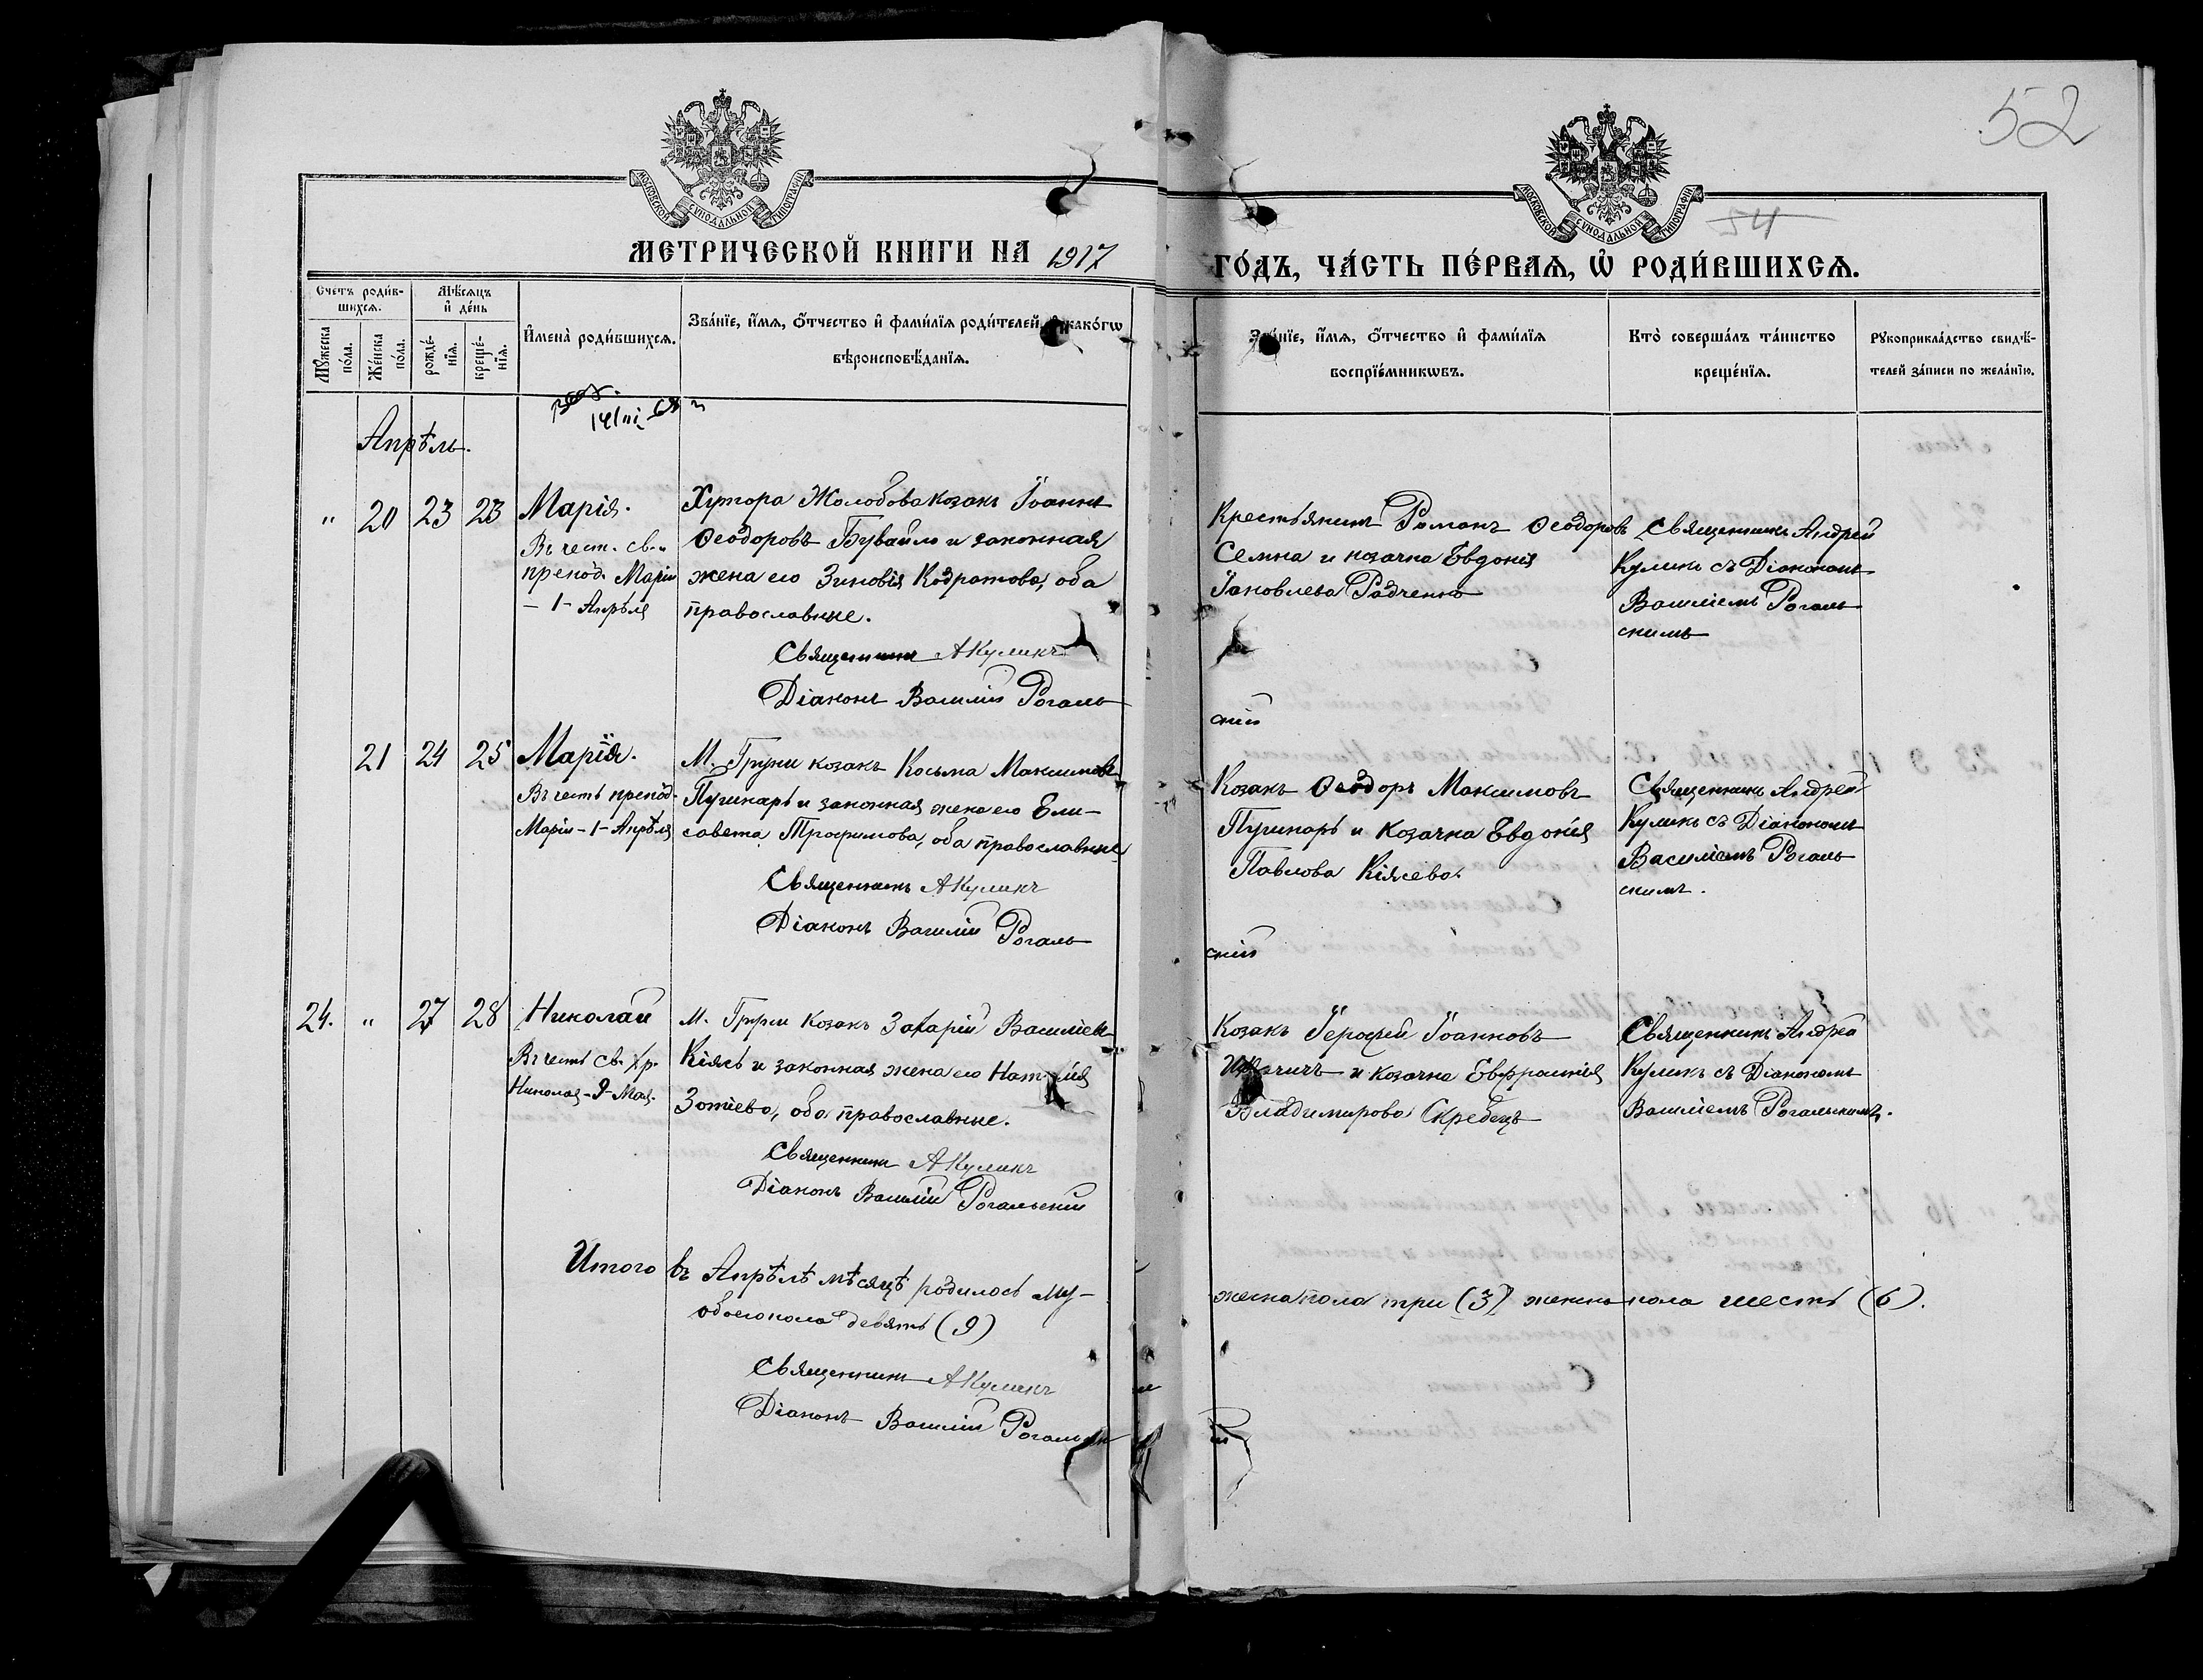 52
МОСКОВСКОЙ СѴНОДАЛЬНОЙ ТИПОГРАФІИ
МОСКОВСКОЙ СѴНОДАЛЬНОЙ ТИПОГРАФІИ
54
МЕТРИЧЕСКОЙ КНИГИ НА 1917
ГО́ДЪ, ЧА́СТЬ ПЕ́РВАѦ, Ѡ҆ РОДИ́ВШИХСѦ.
Счетъ роди́в-
шихсѧ.
Мꙋжеска
по́ла.
Же́нска
по́ла.
Мѣ́сѧцъ
и҆ де́нь
рожде́-
нїѧ.
креще́-
нїѧ.
И҆мена̀ роди́вшихсѧ.
Зва́нїе, и҆́мѧ, ѻ҆́тчество и҆ фами́лїѧ роди́телей, и҆ како́гѡ
вѣроисповѣ́данїѧ.
Зва́нїе, и҆́мѧ, ѻ҆́тчество и҆ фами́лїѧ
воспрїе́мникѡвъ.
Кто̀ соверша́лъ та́инство
креще́нїѧ.
Рꙋкоприкла́дство свидѣ́-
телей за́писи по жела́нїю.
Апрѣль.
" 20 23 23 Марія.
Въ чест. св.
препод. Маріи
– 1 – Апрѣля
Хутора Жолобова козакъ Іоаннъ
Ѳеодоровъ Бувайло и законная
жена его Зиновія Кодратова, оба
православные.
Священникъ АКуликъ
Діаконъ Василій Рогаль
скій
Крестьянинъ Романъ Ѳеодоровъ
Семна и козачка Евдокія
Іаковлева Радченко
Священникъ Андрей
Куликъ съ Діакономъ
Василіемъ Рогаль
скимъ
21 24 25 Марія.
Въ честь препод.
Маріи – 1 – Апрѣля
М. Груни козакъ Косьма Максимовъ
Пушкарь и законная жена его Ели–
савета Трофимова, оба православные
Священникъ АКуликъ
Діаконъ Василій Рогаль
скій
Козакъ Ѳеодоръ Максимовъ
Пушкарь и козачка Евдокія
Павлова Кіяева
Священникъ Андрей
Куликъ съ Діакономъ
Василіемъ Рогаль
скимъ.
24. " 27 28 Николай
Въ честь св. Хр.
Николая – 9 – Мая.
М. Груни козакъ Захарій Василіев
Кіясь и законная жена его Наталія
Зотіева, оба православные.
Священникъ АКуликъ
Діаконъ Василій Рогальскій
Козакъ Іерофей Іоанновъ
и козачка Евфросинія
Владимирова Скребецъ
Священникъ Андрей
Куликъ съ Діакономъ
Василіемъ Рогальскимъ.
Итого въ Апрѣлѣ мѣсяцѣ родилось му–
жеска пола три (3) женска пола шесть (6).
обоего пола девять (9)
Священникъ АКуликъ
Діаконъ Василій Рогальскій